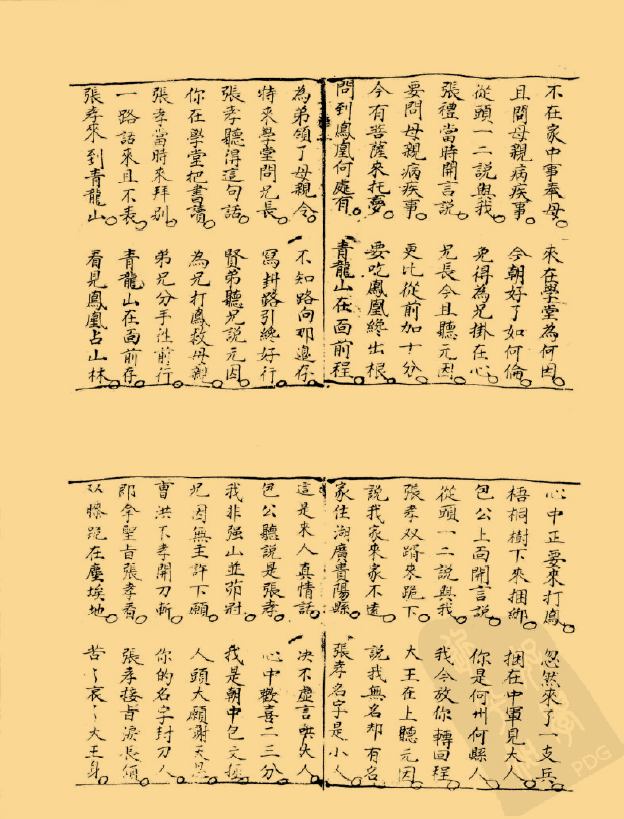 不在家中事奉母 來在學堂為何因
且問母親病疾事 今朝好了如何倫
從頭一二說與我 免得為兄掛在心
張禮當時開言說 兄長今且聽元因
要問母親病疾事 更比從前加十分
今有菩薩來托夢 要吃鳳凰終出根
問到鳳凰何處有 青龍山在面前程
為弟領了母親令 不知路向那邊存
特來學堂問兄長 寫封路引終好行
張孝聽得這句話 賢弟聽兄說元因
你在學堂把書讀 為兄打鳳救母親
張孝當時來拜別 弟兄分手往前行
一路話來且不表 青龍山在面前存
張孝來到青龍山 看見鳳凰占山林
心中正要來打鳳 忽然來了一支兵
梧桐樹下來捆綁 捆在中軍見大人
包公上面開言說 你是何州何縣人
從頭一二說與我 我今放你轉回程
張孝双膝來跪下 大王在上聽元因
說我家來家不遠 說我無名却有名
家住湖廣貴陽縣 張孝名字是小人
這是來人真情話 决不虛言哄大人
包公聽說是張孝 心中歡喜二三分
我非强山並茆冦 我是朝中包文拯
兄因無主許下願 人頭大願謝天恩
曹洪不孝開刀斬 你的名字封刀人
即拿聖旨張孝看 張孝接旨淚長傾
双膝跪在塵埃地 苦〻哀〻大王身
PDG